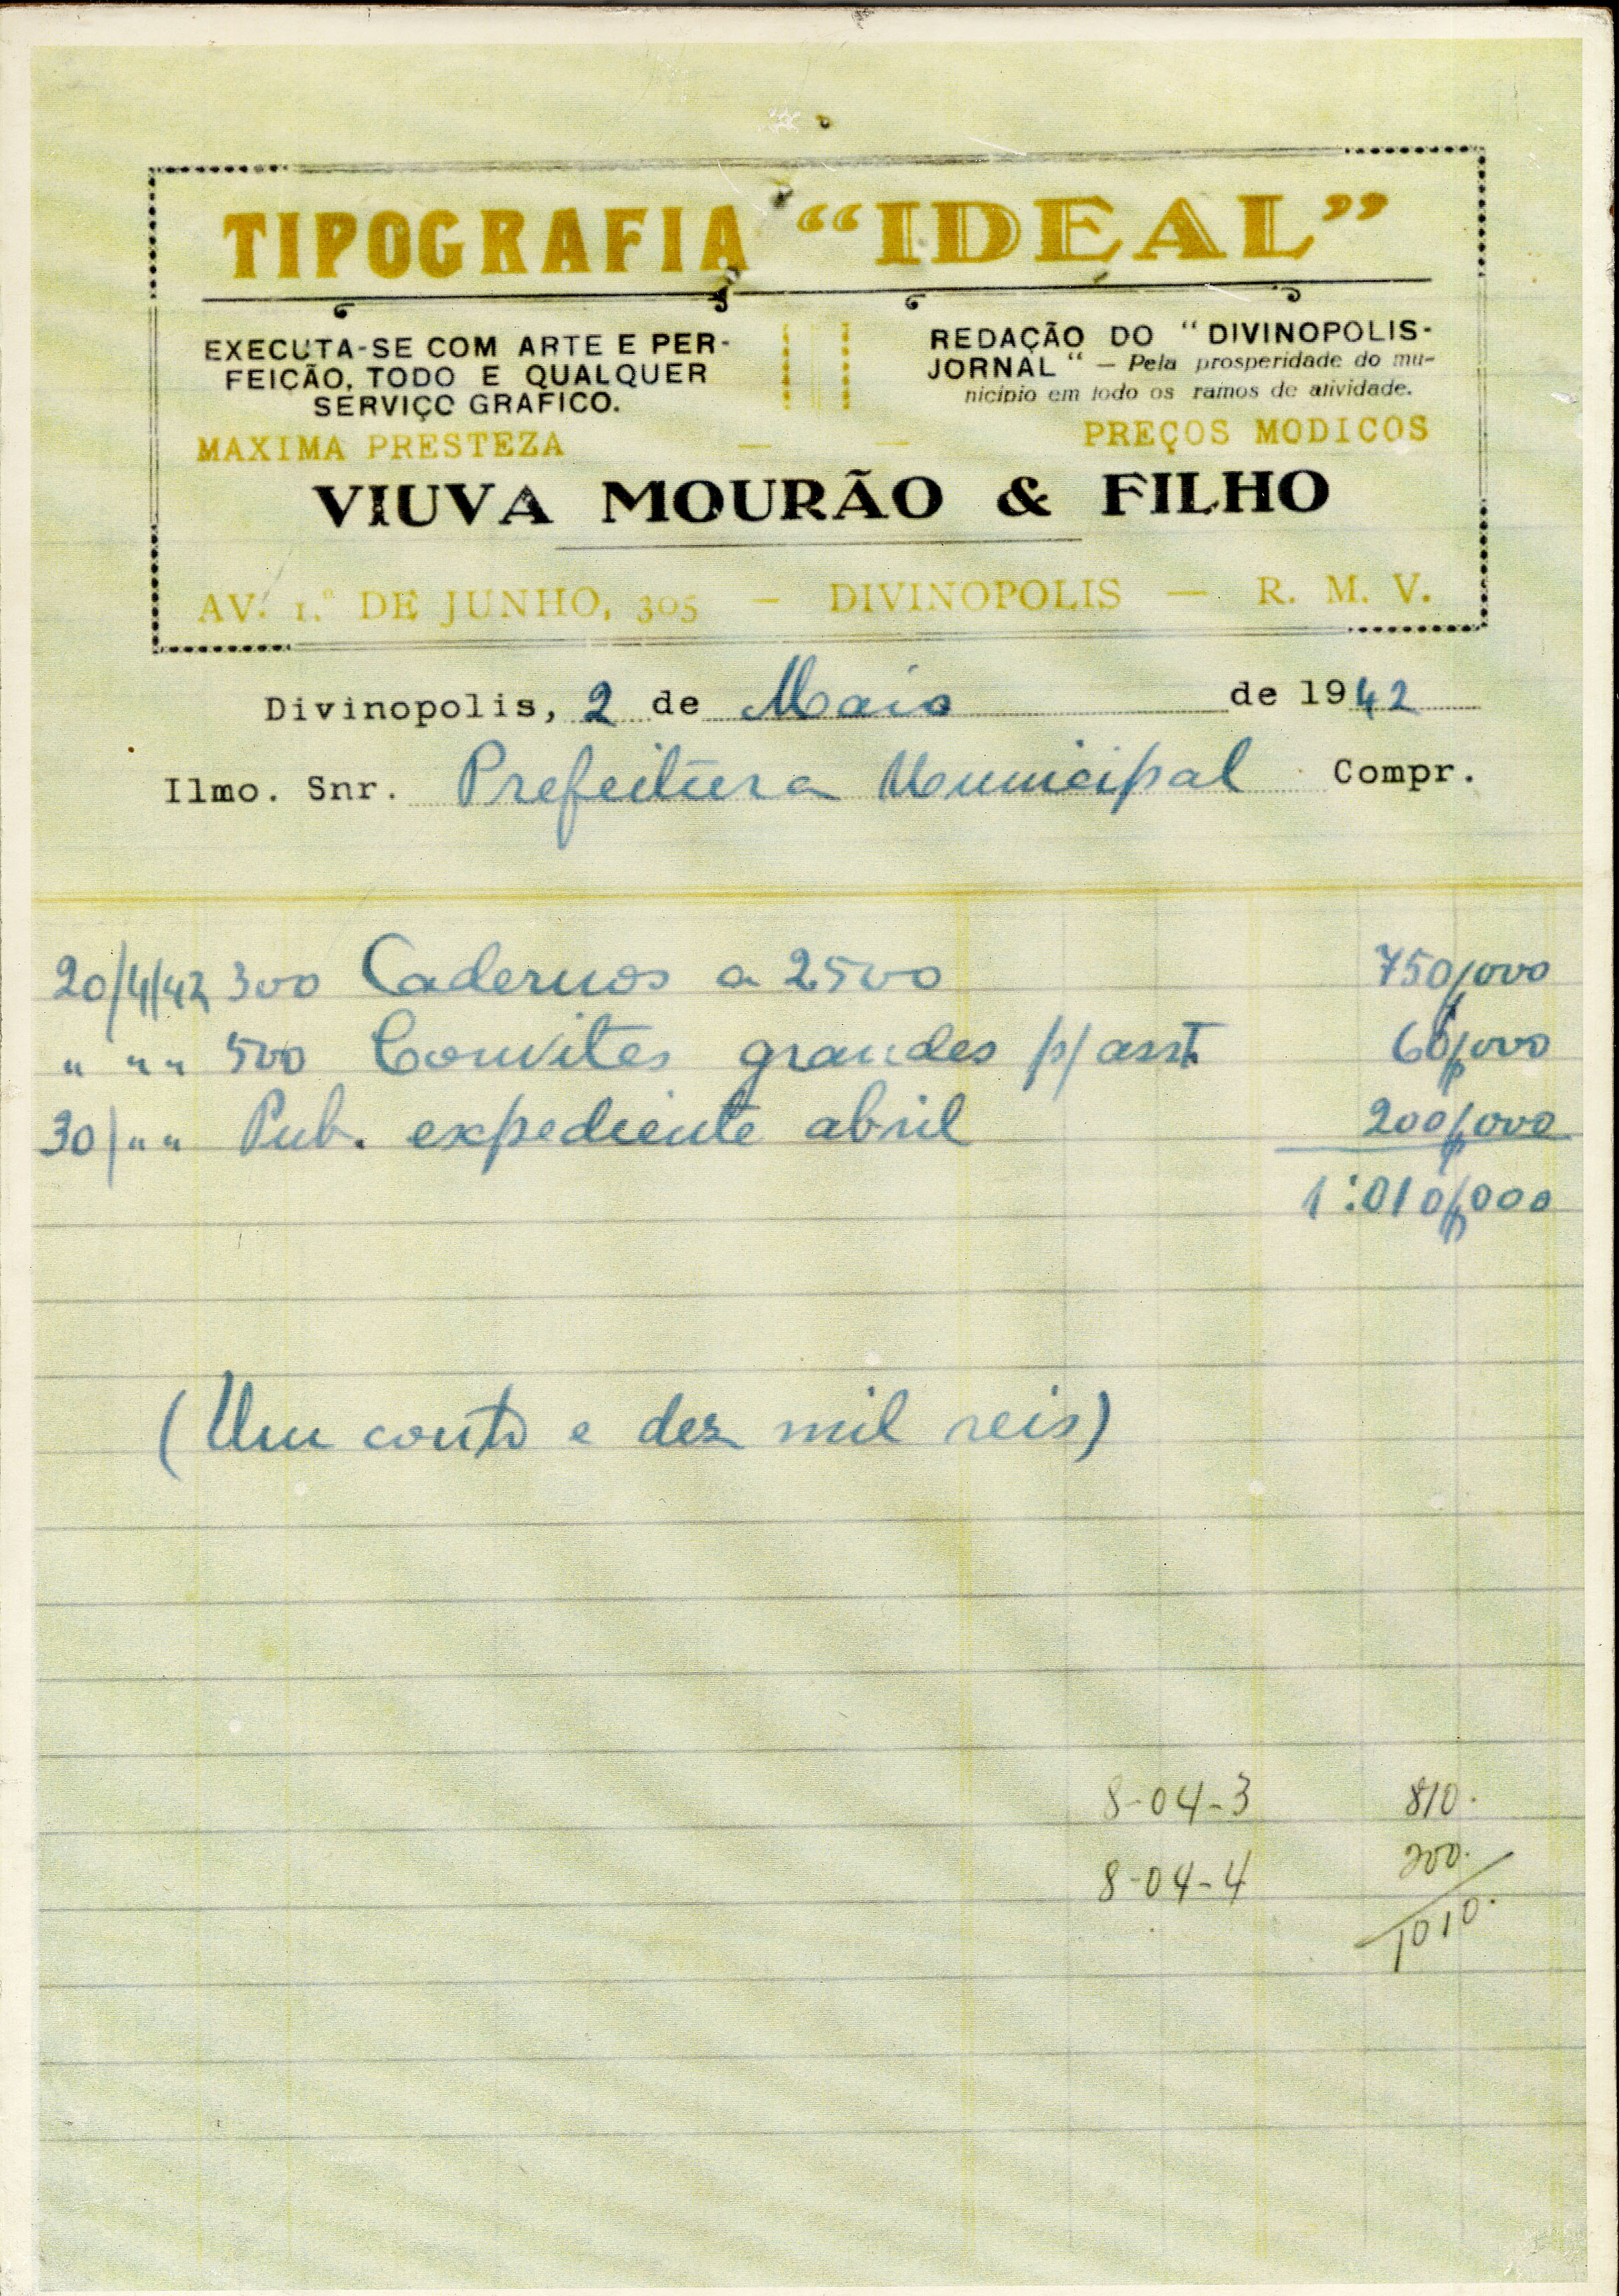 TIPOGRAFIA “IDEAL”
EXECUTA-SE COM ARTE E PER-
FEIÇÃO, TODO E QUALQUER
SERVIÇO GRAFICO.
REDAÇÃO DO “DIVINOPOLIS-
JORNAL“ — Pela prosperidade do mu-
nicipio em todo os ramos de atividade.
MAXIMA PRESTEZA — — PREÇOS MODICOS
VIUVA MOURÃO & FILHO
AV. 1.º DE JUNHO, 305 — DIVINOPOLIS — R. M. V.
Divinopolis, 2 de Maio de 1942
Ilmo. Snr. Prefeitura Municipal Compr.
20/4/42 300 Cadernos a 2500 750$000
" " " 500 Convites grandes p/ 60$000
30/ " " Pub. expediente abril 200$000
1:010$000
(Um conto e dez mil reis)
8-04-3 810.
8-04-4 200.
1010.